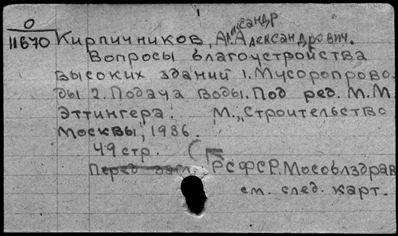 О
11670 Кирпичников, Александр Александрович.
Вопросы благоустройства
высоких зданий 1. Мусоропрово-
ды 2. Подача воды. Под ред. М.М.
Эттингера. М., "Строительство
Москвы, 1936.
49 стр.
Перед загл. РСФСР. Мособлздрав
см. след. карт.